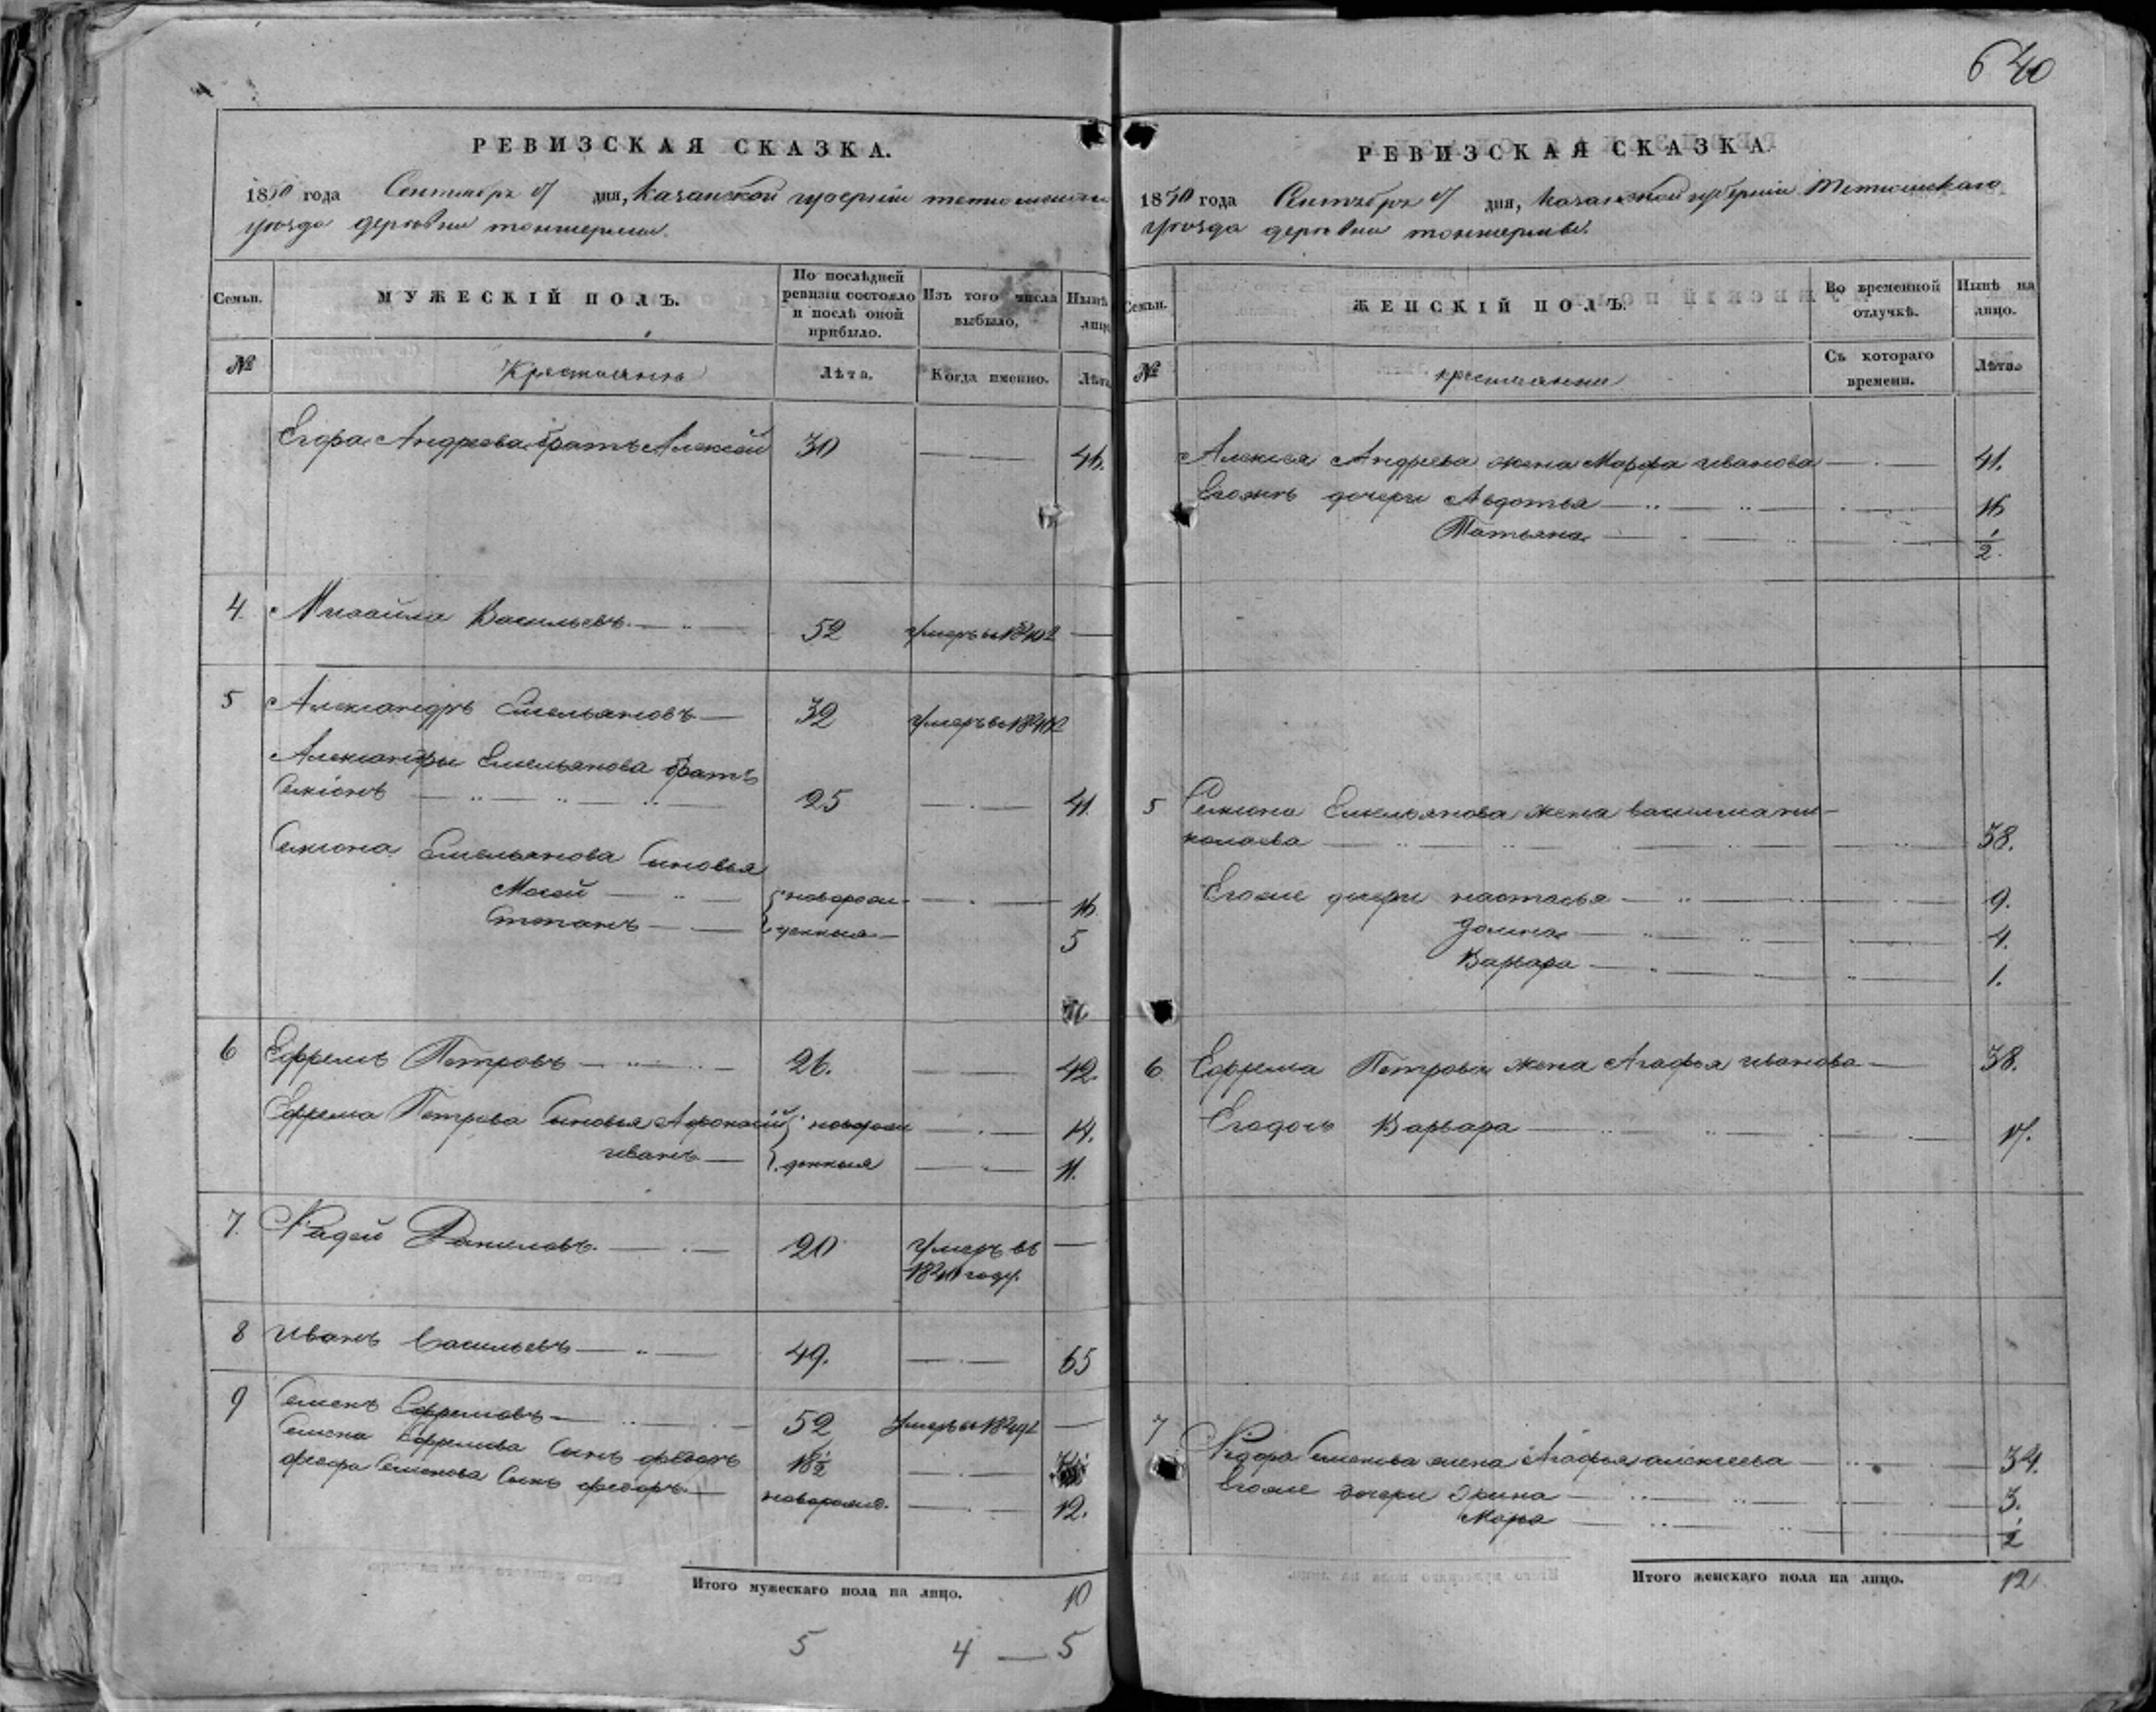 640
РЕВИЗСКАЯ СКАЗКА.
1850 года Сентября дня, Казанской губернии тетюшскаго
уѣзда деревни
Семьи.
МУЖЕСКІЙ ПОЛЪ.
По послѣдней ревизіи состояло и послѣ оной прибыло.
Изъ того числа выбыло.
Нынѣ лицо
№
Крестьяне
Лѣта.
Когда именно.
Лѣта
Егора Андреева братъ Алексей 30 46.
4 Михайла Васильевъ 52 умеръ въ
5 Александръ Емельяновъ 32 умеръ въ
Александры Емельянова братъ
Семіонъ 25 41.
Семиона Емельянова Сыновья
Мосей новорож- 16
Степанъ денныя 5
6 Ефремъ Петровъ 26. 42.
Ефрема Петрова Сыновья Афонасій новорож 14.
иванъ денныя 11.
7. Фадей Даниловъ 20 Умеръ въ
году.
8 иванъ Васильевъ 49. 65
9 Семенъ Ефремовъ 52 Умеръ въ
Семена Ефремова Сынъ федоръ 18 1/2
федора Семенова Сынъ федоръ новорожд. 12.
Итого мужескаго пола на лицо. 10
5 4 — 5
РЕВИЗСКАЯ СКАЗКА.
1850 года Сентября дня, Казанской губерніи Тетюшскаго
уѣзда деревни
Семьи.
ЖЕНСКІЙ ПОЛЪ.
Во временной отлучкѣ.
Нынѣ на лицо.
№
крестьянки
Съ котораго времени.
Лѣта.
Алексея Андреева жена Марфа иванова 41.
Егожъ дочери Авдотья 16
Татьяна 1/2.
5 Семиона Емельянова жена василиса ни-
колаева 38.
Егоже дочери настасья 9.
4.
Варвара 1.
6 Ефрема Петрова жена Агафья иванова 38.
Егодочь Варвара 17.
7 Федора Семенова жена Агафья алексеева 34.
Егоже дочери Орина 3.
1/2
Итого женскаго пола на лицо. 12